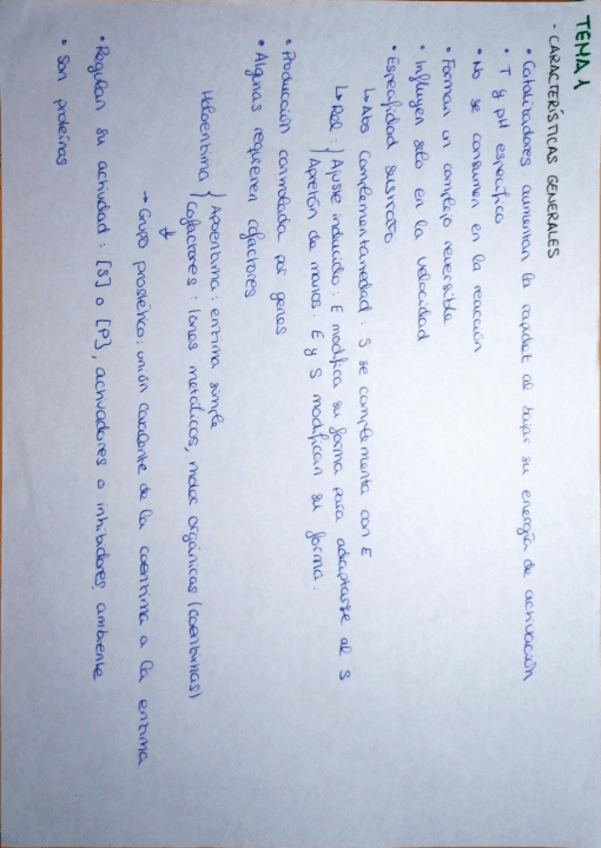 TEMA 1
- CARACTERÍSTICAS GENERALES
• Catalizadores: aumentan la rapidez al bajar su energía de activación
• T y pH específico
• No se consumen en la reacción
• Forman un complejo reversible
• Influyen solo en la velocidad
• Especifidad sustrato
↳ Abs Complementariedad: S se complementa con E
↳ Rel: } Ajuste inducido: E modifica su forma para adaptarse al S
Apretón de manos: E y S modifican su forma.
• Producción controlada por genes
• Algunas requieren cofactores
Holoenzima { Apoenzima: enzima simple
Cofactores: iones metálicos, moléc orgánicas (coenzimas)
↓
→ Grupo prostético: unión covalente de la coenzima a la enzima
• Regulan su actividad: [S] o [P], activadores o inhibidores, ambiente
• Son proteínas